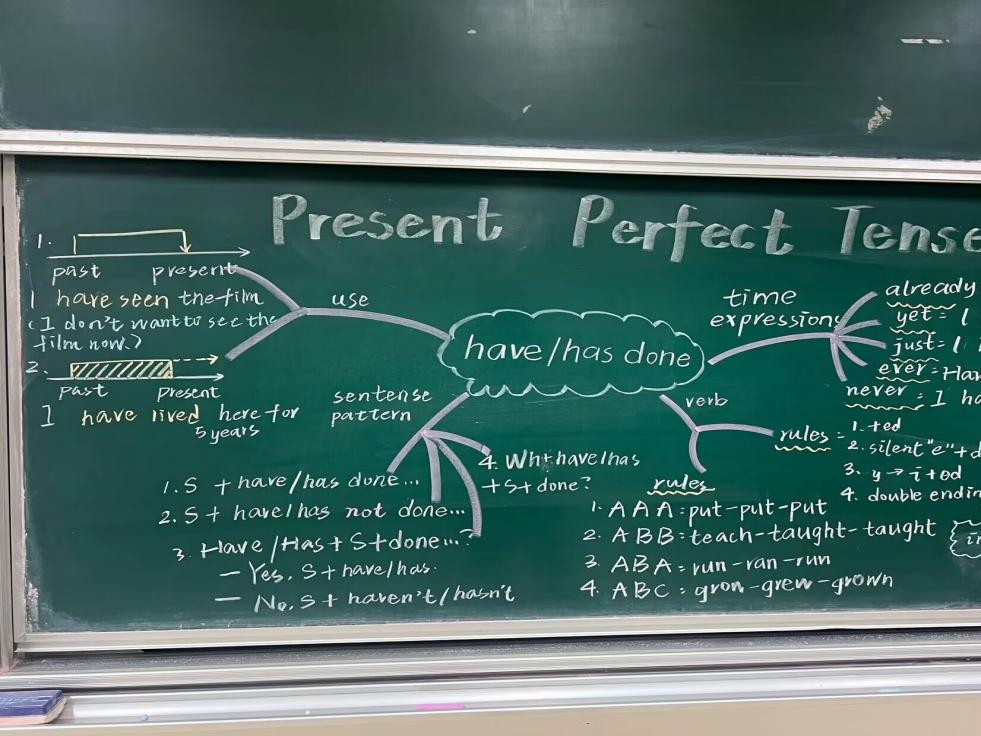 Present Perfect Tense
1.
past present
I have seen the film
(I don't want to see the
film now.)
2.
past present
I have lived here for
5 years
use
have/has done
time
expressions
already
yet =
just =
ever = Hav
never = I ha
sentence
pattern
1. S + have/has done...
2. S + have/has not done...
3. Have/Has + S + done...?
— Yes, S + have/has.
— No, S + haven't/hasn't
4. Wh + have/has
+ S + done?
verb
rules =
1. +ed
2. silent "e" + d
3. y → i + ed
4. double endin
rules
1. A A A : put-put-put
2. A B B : teach-taught-taught
3. A B A : run-ran-run
4. A B C : gron-grew-grown